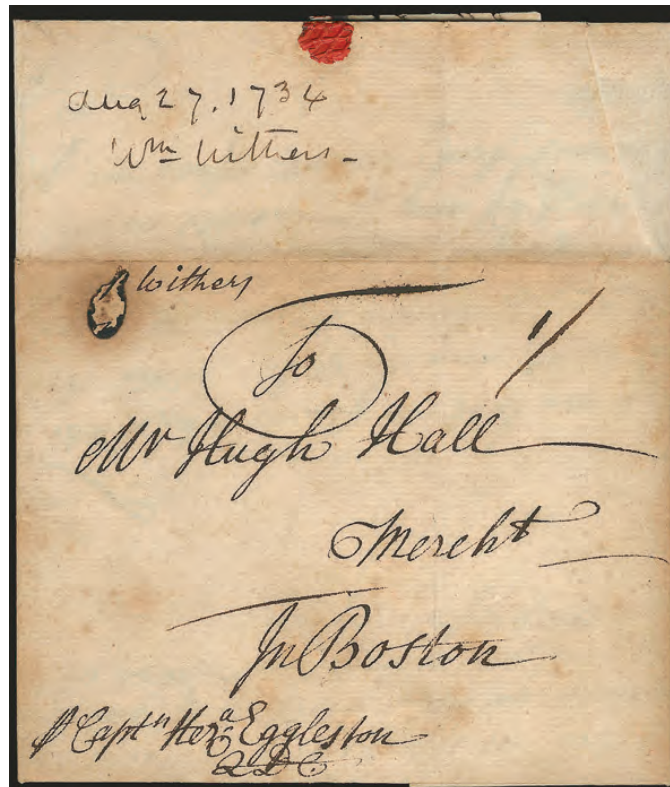 Aug 27. 1734
Wm Withers -
Withers
1/
To
Mr Hugh Hall
Mercht
In Boston
Captn Eggleston
QDC